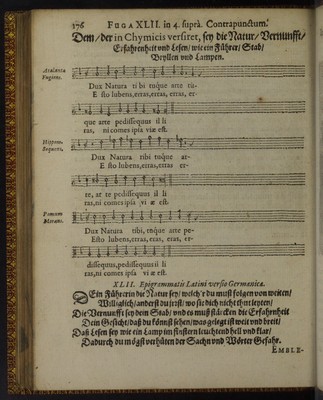 176 FUGA XLII. in 4. suprà. Contrapunctum.
Dem/ der in Chymicis versiret, sey die Natur/ Vernunfft/
Erfahrenheit und Lesen/ wie ein Führer/ Stab/
Bryllen und Lampen.
Atalanta
Fugiens.
Dux Natura tibi tuque arte tii-
E sto lubens, erras, erras, erras, er-
que arte pedissequus il li
ras, ni comes ipsa viæ est.
Hippom.
Sequens.
Dux Natura tibi tuque ar-
E sto lubens, erras, erras er-
te, at te pedissequus il li
ras, ni comes ipsa vi æ est.
Pomum
Morans.
Dux Natura tibi, tuque arte pe-
Esto lubens, erras, eras, eras, er-
dissequus, pedissequus il li
ras, ni comes ipsa vi æ est.
XLII. Epigrammatis Latini versio Germanica.
DEin Führerin die Natur sey/ welch'r du must folgen von weiten/
Williglich/ anderst du irrest/ wo sie dich nicht thut leyten/
Die Vernunfft sey dein Stab/ und es muß stärcken die Erfahrenheit
Dein Gesicht/ daß du könnst sehen/ was gelegt ist weit und breit/
Daß Lesen sey wie ein Lamp im finstern leuchtend hell und klar/
Dadurch du mögst verhüten der Sachn und Wörter Gefahr.
EMBLE-